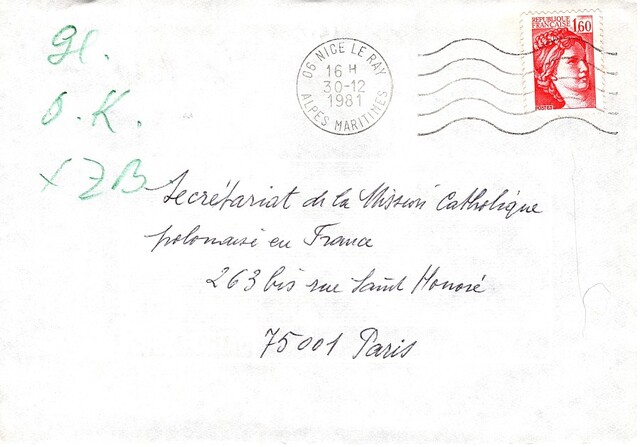 gl.
O.K.
x ZB
06 NICE LE RAY
16 H
30-12
1981
ALPES MARITIMES
REPUBLIQUE
FRANÇAISE
1,60
POSTES
Secrétariat de la Mission Catholique
polonaise en France
263 bis rue Saint Honoré
75001 Paris